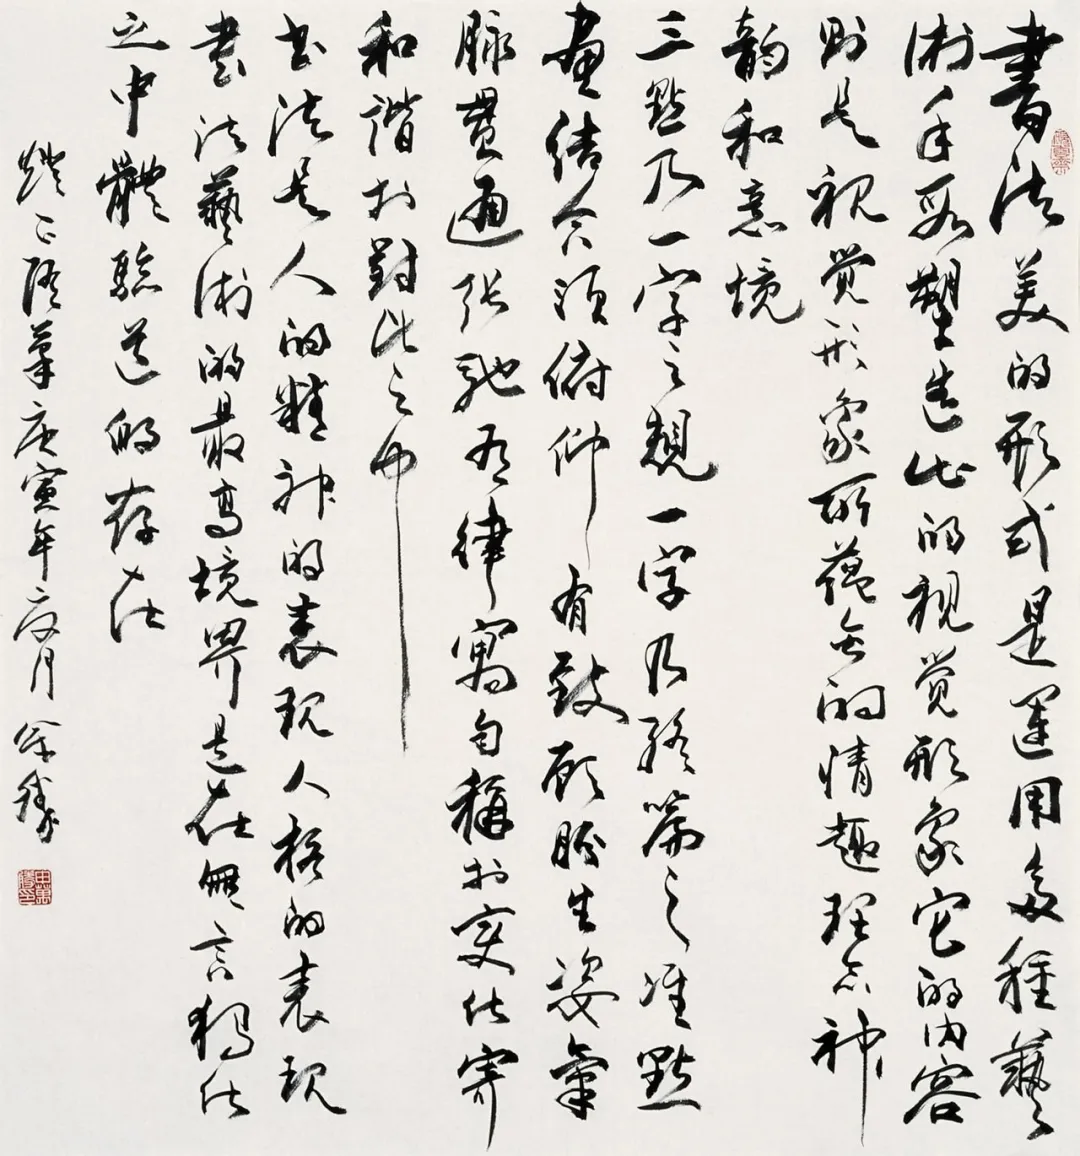 書法美的形式是運用多種藝
術手段塑造出的視覺形象它的內容
則是視覺形象所蘊含的情趣理念神
韻和意境
三點乃一字之規一字乃終篇之准點
畫結合須俯仰有致顧盼生姿氣
脉貫通張馳有律寓匀稱於变化寄
和諧於對比之中
書法是人的精神的表現人格的表現
書法藝術的最高境界是在無言独化
之中體驗道的存在
燈下隨筆庚寅年夏月